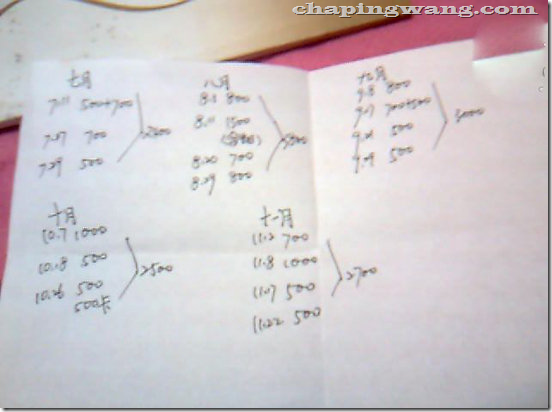 chapingwang.com
七月
7.11 500+700
7.27 700
7.29 500
2400
八月
800
8.11 1500
8.20 700
8.29 800
3800
九月
9.8 800
9.17 700+500
500
500
3000
十月
10.7 1000
10.18 500
10.26 500
500卡
2500
十一月
11.2 700
11.8 1000
11.17 500
11.22 500
2700